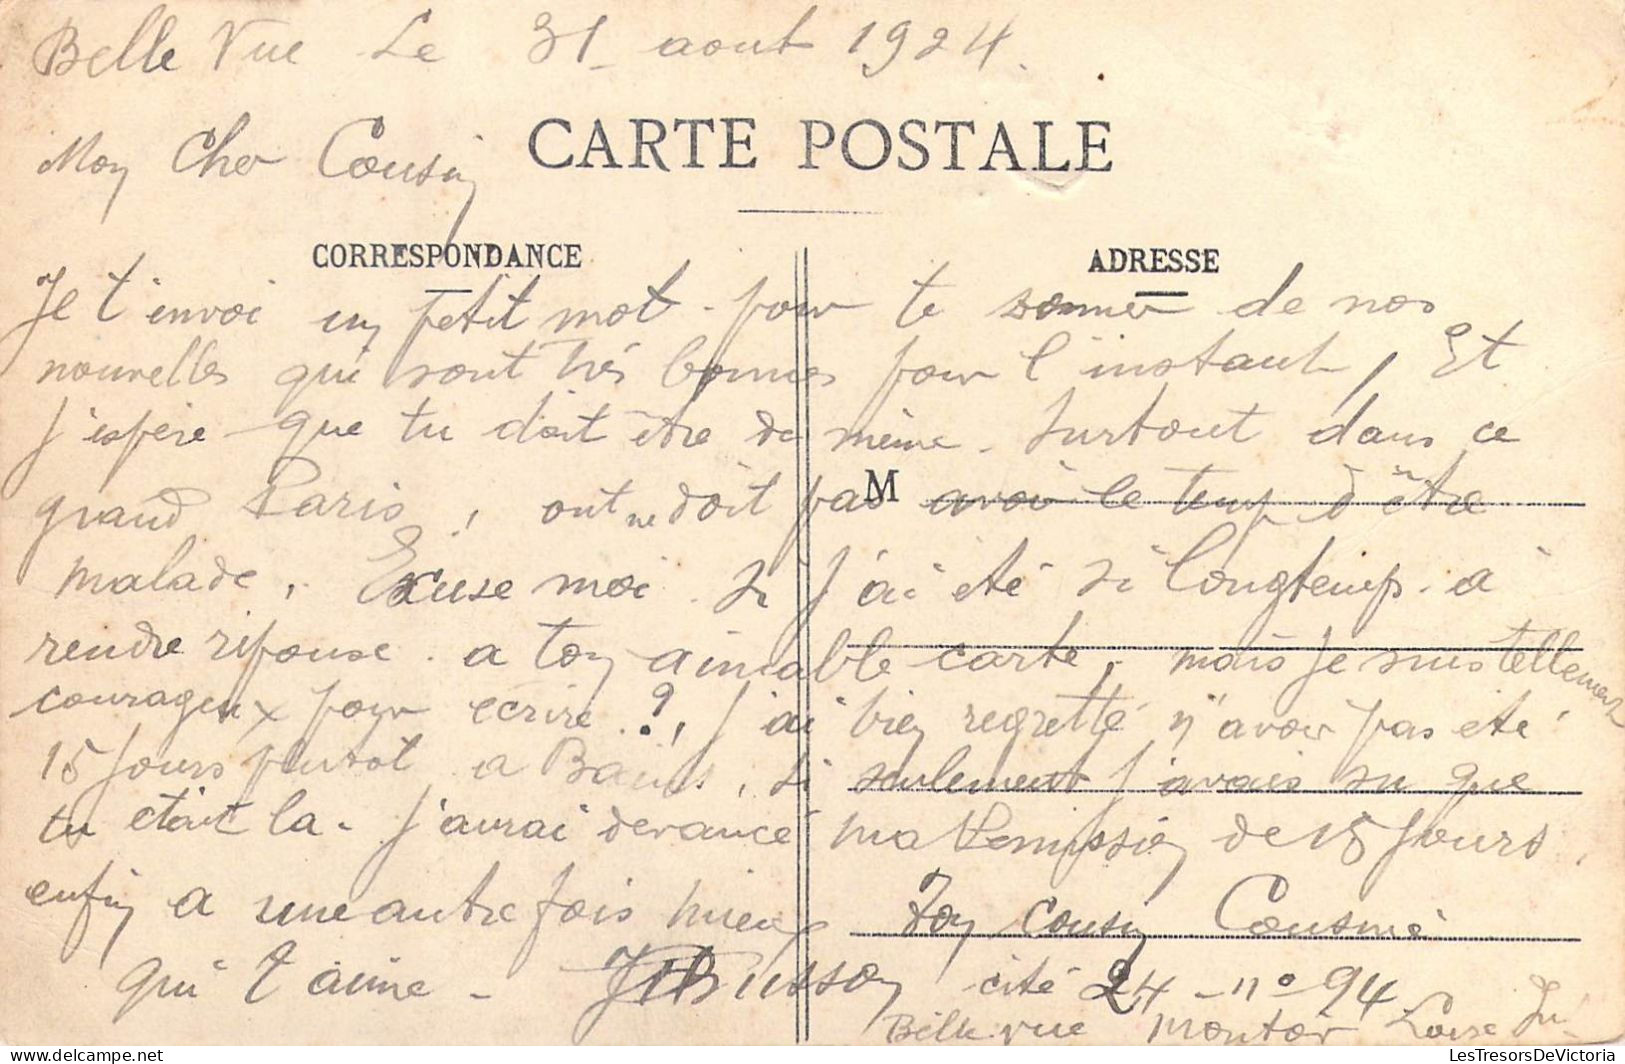 Belle Vue Le 31 aout 1924.
Mon Cher Cousin
CARTE POSTALE
CORRESPONDANCE
ADRESSE
Je t'envoi un petit mot. pour te donner de nos
nouvelles qui sont très bonnes pour l'instant, Et
j'espère que tu doit être de même. surtout dans ce
grand Paris, ont ne doit pas avoir le temp d'être
M
malade, Excuse moi. si j'ai été si longtemps. a
rendre réponse. a ton aimable carte, mais je suis tellement
courageux pour ecrire ?, j'ai bien regretté n'avoir pas eté
15 jours plutot a Bains, si seulement j'avais su que
tu était la. j'aurai devancé ma Permission de 15 jours,
enfin a une autre fois mieux Ton cousin
qui t'aime - Busson cité 24 - n° 94
Belle vue Montoir Loire Inf.
www.LesTresorsDeVictoria.com